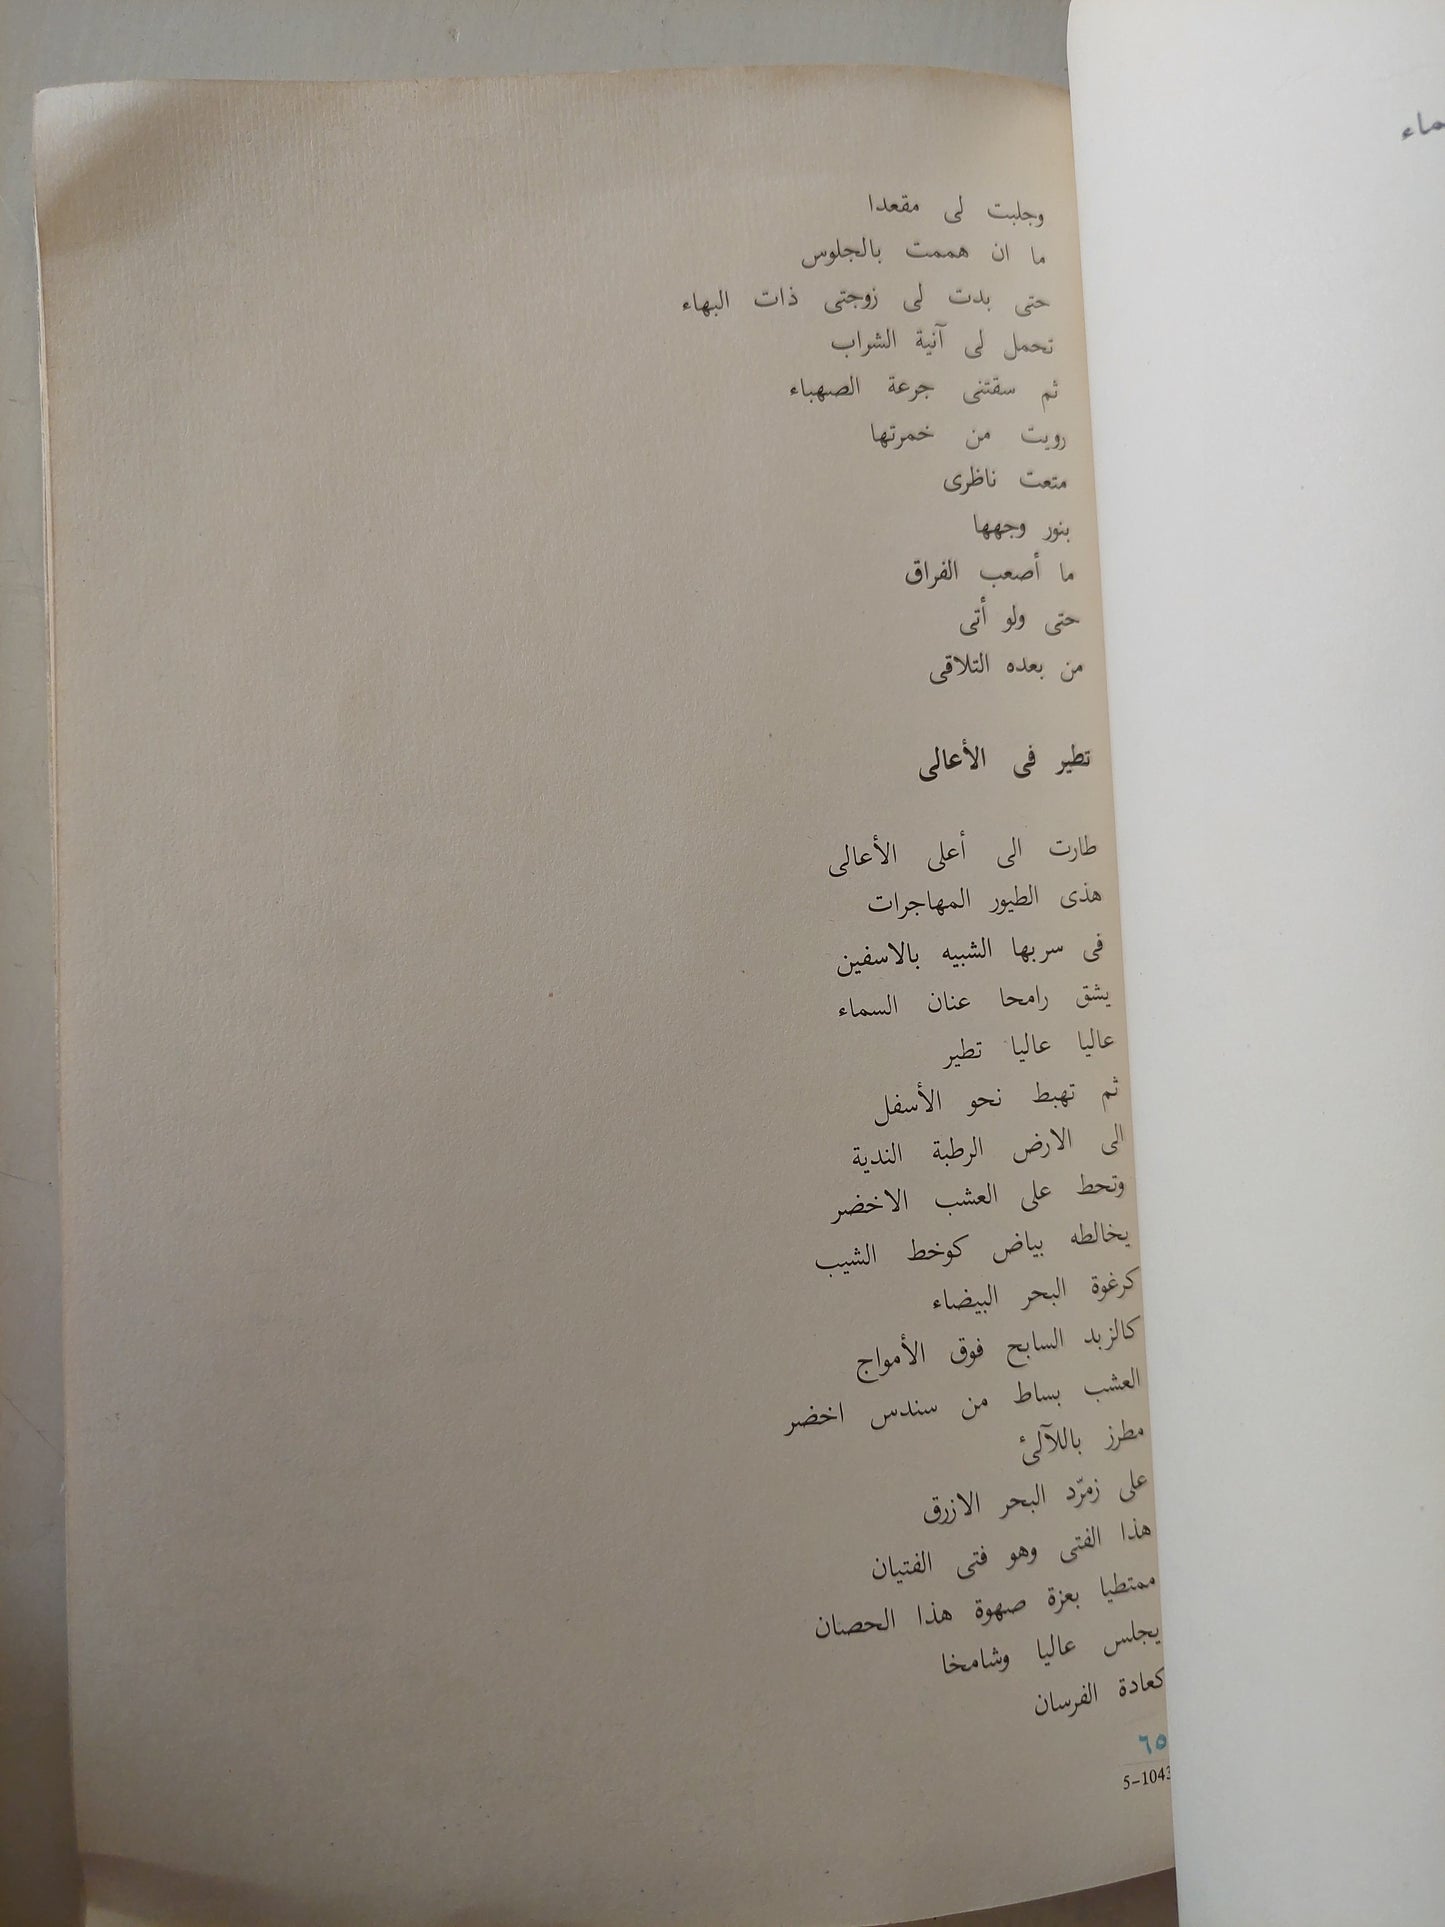 وجلبت لى مقعدا
ما ان هممت بالجلوس
حتى بدت لى زوجتى ذات البهاء
تحمل لى آنية الشراب
ثم سقتنى جرعة الصهباء
رويت من خمرتها
متعت ناظرى
بنور وجهها
ما أصعب الفراق
حتى ولو أتى
من بعده التلاقى
تطير فى الأعالى
طارت الى أعلى الأعالى
هذى الطيور المهاجرات
فى سربها الشبيه بالاسفين
يشق رامحا عنان السماء
عاليا عاليا تطير
ثم تهبط نحو الأسفل
الى الارض الرطبة الندية
وتحط على العشب الاخضر
يخالطه بياض كوخط الشيب
كرغوة البحر البيضاء
كالزبد السابح فوق الأمواج
العشب بساط من سندس اخضر
مطرز باللآلئ
على زمرّد البحر الازرق
هذا الفتى وهو فتى الفتيان
ممتطيا بعزة صهوة هذا الحصان
يجلس عاليا وشامخا
كعادة الفرسان
٦٥
5-1043